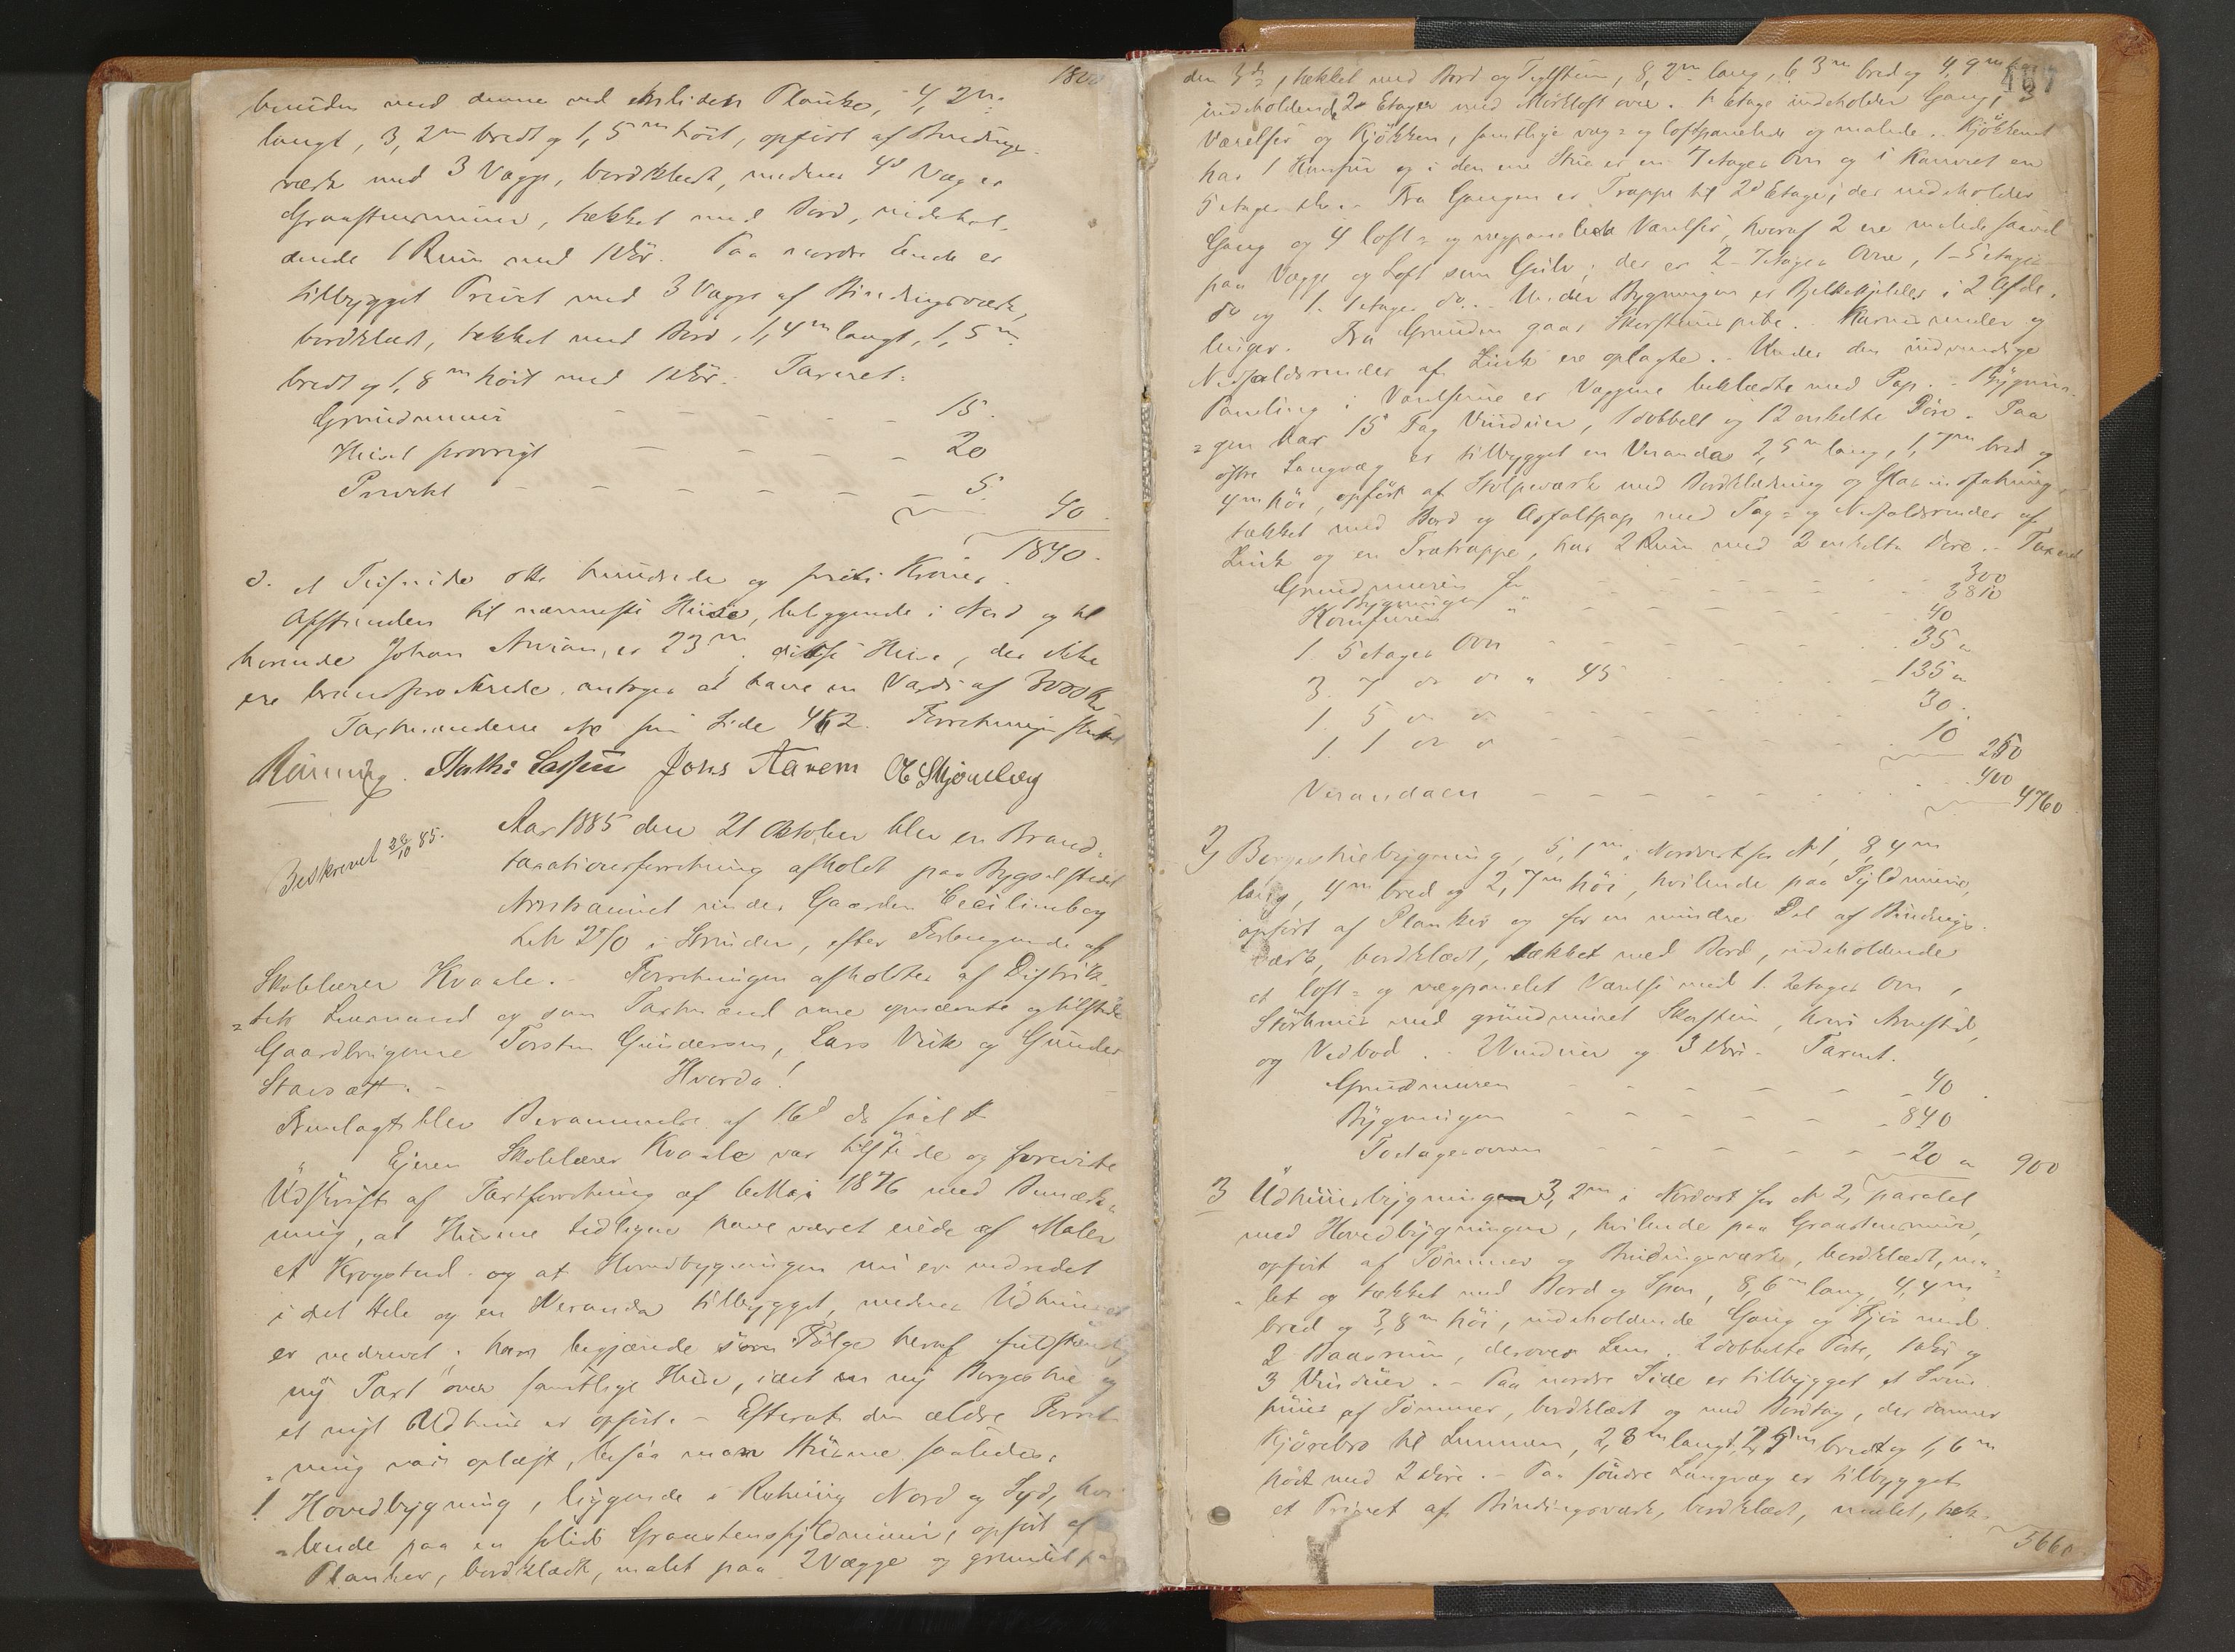 1800
bunden med denne ved Planke, 4,2m
langt, 3,2m bredt og 1,5m höit, opfört af Bindings-
værk med 3 Vægge, bordklædt, medens 4d Væg er
Graastensmuur, tækket med Bord, indehol-
dende 1 Rum med 1 Dör. Paa nordre Ende er
tilbygget Privet med 3 Vægge af Bindingsværk,
bordklædt, tækket med Bord, 1,4m langt, 1,5m
bredt og 1,8m höit med 1 Dör. Taxeret:
Grundmuur - - - 15.
Huset forövrigt - - - - 20
Privetet - - - - - - 5.
40.
1840.
d. et Tusinde otte hundrede og förti Kroner.
Afstanden til nærmeste Huse, beliggende i Nord og til
hörende Johan, er 23m, disse Huse, der ikke
ere brandforsikrede antages at have en Værdi af 3000 Kr
Taxmændene see paa Side 462. Forretningen sluttet
Rönning. Lassen Johs Aavem O Skjönberg
Beskrevet 28/10 85.
Aar 1885 den 21 Oktober blev en Brand-
taxationsforretning afholdt paa Bygselstedet
under Gaarden Cecilienborg
i Strinden, efter Forlangende af
Skolelærer Kvaale. - Forretningen afholdtes af Distrik-
=tets Lensmand og som Taxtmænd vare opnævnte og tilstede
Gaardbrugerne Torsten Gundersen, Lars Vük og Gunder
Stavsæt. - Hvorda!
Fremlagt blev Berammelse af 16d ds
Ejeren Skolelærer Kvaale var tilstede og foreviste
Udskrift af Taxtforretning af 6 Maj 1876 med Bemærk-
ning, at Husene tidligere have været eiede af Maler
A Krogstad og at Hovedbygningen nu er indredet
i det Hele og en Veranda tilbygget, medens Udhuset
er nedrevet; han begjærede som Fölge heraf fuldstændig
ny Taxt over samtlige Huse, idet en ny Borgestue og
et nyt Udhuus er opfört. - Efterat den ældre Forret-
=ning var oplæst, besaa man Husene saaledes:
1 Hovedbygning, liggende i Retning Nord og Syd, hvi-
=lende paa en solid Graastensfyldmuur, opfört af
Planker, bordklædt, malet paa 2 Vægge og grundet paa
467
den 3de, tækket med Bord og Teglsteen, 8,2m lang, 6,3m bred og 4,9m
indeholdende 2 Etager med Mörkloft over. 1te Etage indeholder Gang, 3
Værelser og Kjökken, samtlige væg= og loftpanelede og malede. Kjökkenet
har 1 Komfur og i den ene Stue er en 7 etages Ovn og i Kamret en
5 etages do. - Fra Gangen er Trappe til 2d Etage, der indeholder
Gang og 4 loft= og vægpanelede Værelser, hvoraf 2 ere malede saavel
paa Vægge og Loft som Gulv; der er 2 - 7 etages Ovne, 1 - 5 etages
do og 1. 1 etages do. - Under Bygningen er Bjelkekjelder i 2 Afde-
linger. Fra Grunden gaar Skorstenspibe. Karnisrender og
Nedfaldsrender af Zink ere oplagte. - Under den indvendige
Paneling i Værelserne er Væggene beklædte med Pap. - Bygnin-
=gen har 15 Fag Vinduer, 1 dobbelt og 12 enkelte Döre. Paa
östre Langvæg er tilbygget en Veranda 2,5m lang, 1,7m bred og
4m höi, opfört af Stolpeværk med Bordklædning og Glasindfatning,
tækket med Bord og Asfaltpap med Tag= og Nedfaldsrender af
Zink og en Trætrappe, har 2 Rum med 2 enkelte Döre. - Taxeret
Grundmuren for - - - 300
Bygningen " - - - 3810
Komfuren " - - - 40
1 5 etages Ovn - - - 35 "
3. 7 do do " 45 - - - 135 "
1. 5 do do - - - 30.
1. 1 do do - - - 10
250
Verandaen - - - 400
4760
2, Borgestuebygning, 5,1m i Nordvest for No 1, 8,4m
lang, 4m bred og 2,7m höi, hvilende paa Fyldmuur,
opfört af Planker og for en mindre Del af Bindings-
værk, bordklædt, tækket med Bord, indeholdende
et loft= og vægpanelet Værelse med 1. 2 etages Ovn,
med grundmuret Skorsten, hvori Arnested,
og Vedbod. - 2 Vinduer og 3 Döre. Taxeret.
Grundmuren - - - 40
Bygningen - - - 840
Toetagesovnen - - - 20 " 900
3 Udhuusbygningen 3,2m i Nordost for No 2, paralel
med Hovedbygningen, hvilende paa Graasteensmuur,
opfört af Tömmer og Bindingsværk, bordklædt, ma-
let og tækket med Bord og Spon, 8,6m lang, 4,4m
bred og 3,8m höi, indeholdende Gang og Fjös med
2 Baasrum, derover Lem. 2 dobbelte Porte, 1 Dör og
3 Vinduer. - Paa nordre Side er tilbygget et Sviin-
huus af Tömmer, bordklædt og med Bordtag, der danner
Kjörebro til Lemmen, 2,8m langt, bredt og 1,6m
höit med 2 Döre. - Paa söndre Langvæg er tilbygget
et Privet af Bindingsværk, bordklædt, malet, tæk-
5660